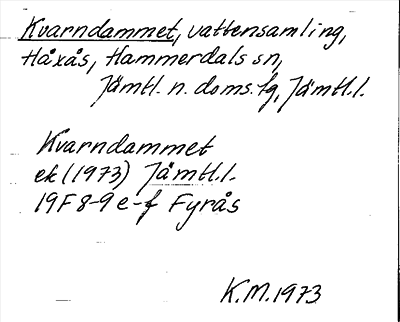 Kvarndammet, vattensamling,
Håxås, Hammerdals sn,
Jämtl. n. doms.fg, Jämtl.l.
Kvarndammet
ek (1973) Jämtl.l.
19F 8-9 e-f Fyrås
K.M. 1973